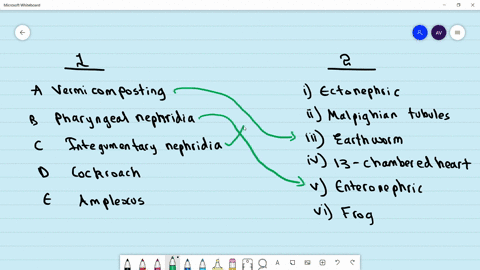 Microsoft Whiteboard
AV
1
2
A Vermicomposting
B Pharyngeal nephridia
C Integumentary nephridia
D Cockroach
E Amplexus
i) Ectonephric
ii) Malpighian tubules
iii) Earthworm
iv) 13-chambered heart
v) Enteronephric
vi) Frog